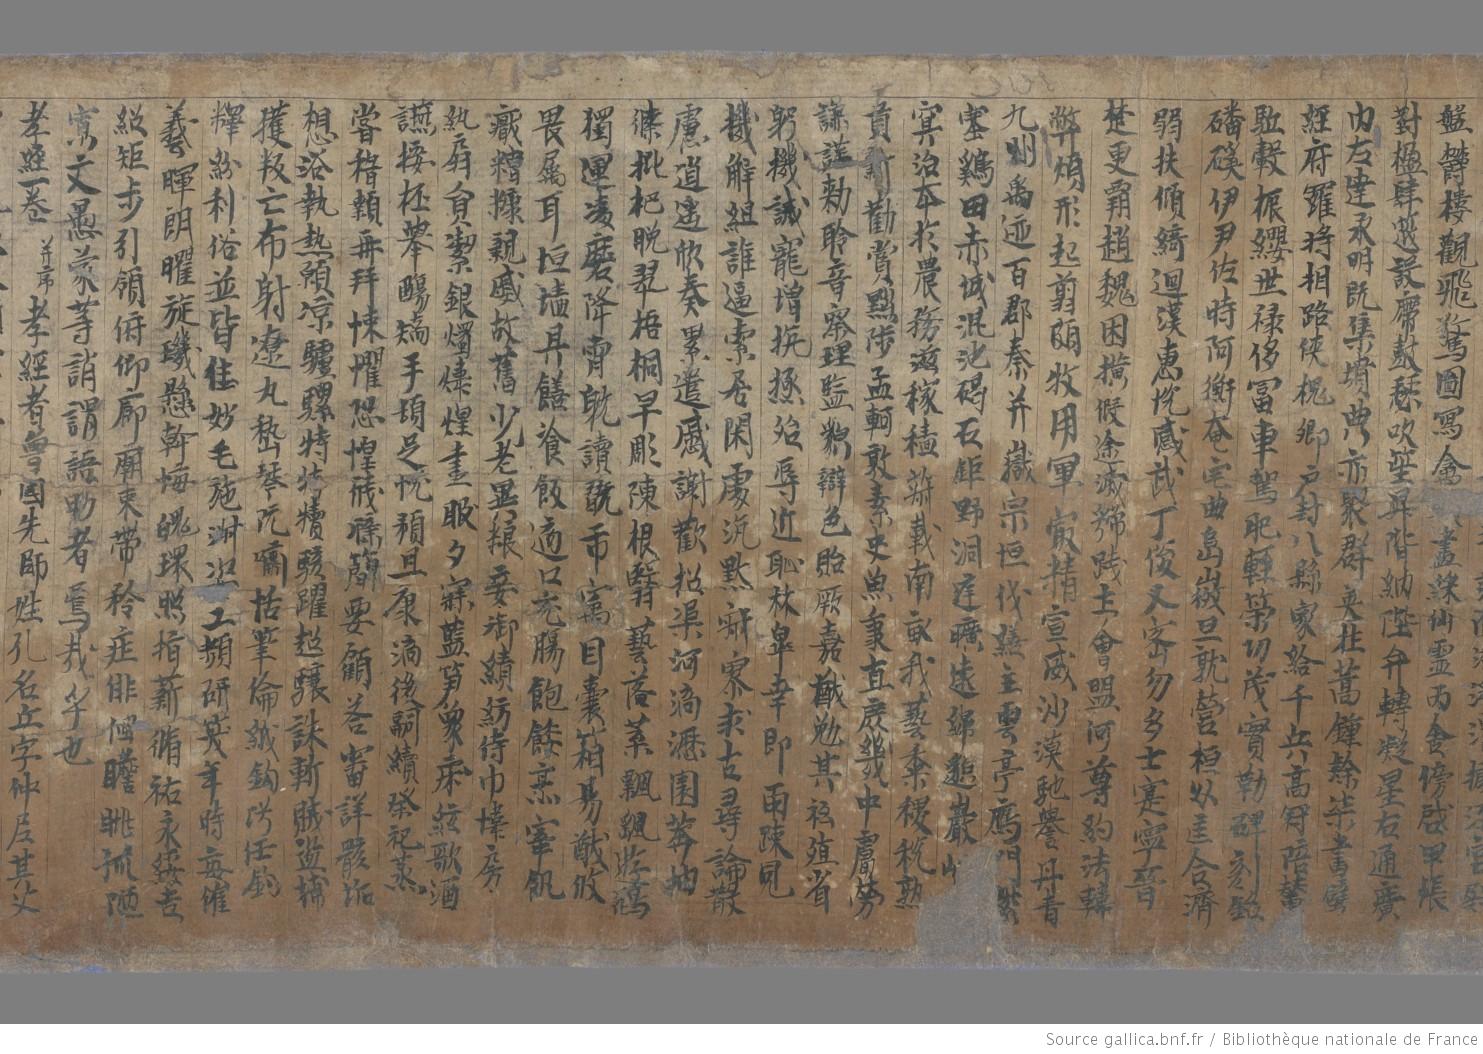 盤欝樓觀飛驚圖寫禽 畫綵仙霊丙舎傍啓甲帳
對楹肆莚設席皷瑟吹笙昇階納陛弁轉疑星右通廣
内左達承明既集墳典亦聚群英杜藁鍾隸柒書壁
經府羅將相路侠槐卿户封八縣家給千兵高冠陪輦
駈轂振纓世禄侈冨車駕肥輕策功茂實勒碑刻銘
磻磎伊尹佐時阿衡奄宅曲阜微旦孰營桓公匡合濟
弱扶傾綺迴漢惠恱感武丁俊乂密勿多士寔寧晉
楚更霸趙魏困横假途滅虢踐土會盟何尊約法韓
弊煩形起翦頗牧用軍最精宣威沙漠馳譽丹青
九州禹迹百郡秦并嶽宗恒伐禪主雲亭鴈門紫
塞鷄田赤城混池碣石鉅野洞庭曠遠綿邈巖
冥治本於農務滋稼穡俶載南畝我藝黍稷税熟
貢新勸賞黜陟孟軻敦素史魚秉直庶幾中庸勞
謙謹勅聆音察理監皃辯色貽厥嘉猷勉其祗殖省
躬機誡寵增抗極殆辱近恥林皐幸即兩疎見
機解組誰逼索居閑處沉默寂寥求古尋論散
慮逍遥欣奏累遣慼謝歡招渠河滴瀝園莽抽
條枇杷晩翠梧桐早彫陳根翳藝落葉飄颻遊鵾
獨運凌磨降霄躭讀翫市寓目囊箱易猷攸
畏属耳垣墻具饍飡飯適口充腸飽飫烹宰飢
厭糟糠親戚故舊少老異粮妾御績紡侍巾帷房
紈扇貟潔銀燭煒煌晝眠夕寐藍笋象床絃歌酒
讌接杯舉觴矯手頓足恱預且康滴後嗣續祭祀蒸
甞稽顙再拜悚懼恐惶牋牒簡要顧荅審詳骸垢
想浴執熱願涼驢騾特犢駭躍超驤誅斬賊盗捕
獲叛亡布射遼丸嵇琴阮嘯恬筆倫紙鈞巧任釣
釋紛利俗並皆佳妙毛施淑姿工嚬研𥬇年時每催
羲暉朗曜旋璣懸斡晦魄環照指薪脩祐永綏吉
紹矩步引領俯仰廊廟束帶矜庄俳佪瞻眺孤陋
寡文愚蒙等誚謂語助者焉哉乎也
孝經一卷 并序 孝經者魯國先師姓孔名丘字仲尼其父